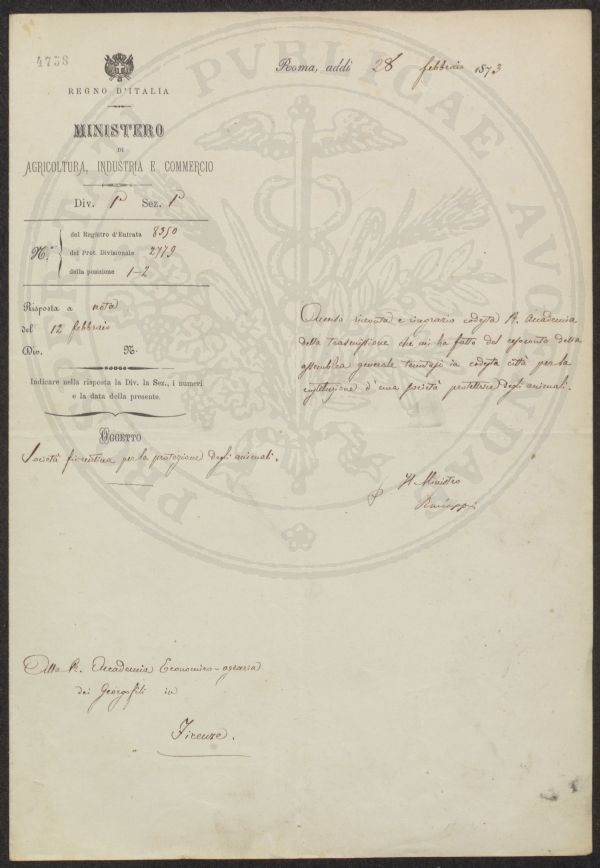 4738
Roma, addì 28 febbraio 1873
REGNO D'ITALIA
MINISTERO
DI
AGRICOLTURA, INDUSTRIA E COMMERCIO
Div. 1ª Sez. 1ª
N.º
del Registro d'Entrata 8350
del Prot. Divisionale 2779
della posizione 1-2
Risposta a nota
del 12 febbraio
Div. N.
Indicare nella risposta la Div. la Sez., i numeri
e la data della presente.
OGGETTO
Società fiorentina per la protezione degli animali.
Accuso ricevuta e ringrazio codesta R. Accademia
della trasmissione che mi ha fatto del resoconto della
assemblea generale tenutasi in codesta città per la
costituzione d'una società protettrice degli animali.
Il Ministro
Alla R. Accademia Economico-agraria
dei Georgofili in
Firenze.
PUBLICAE